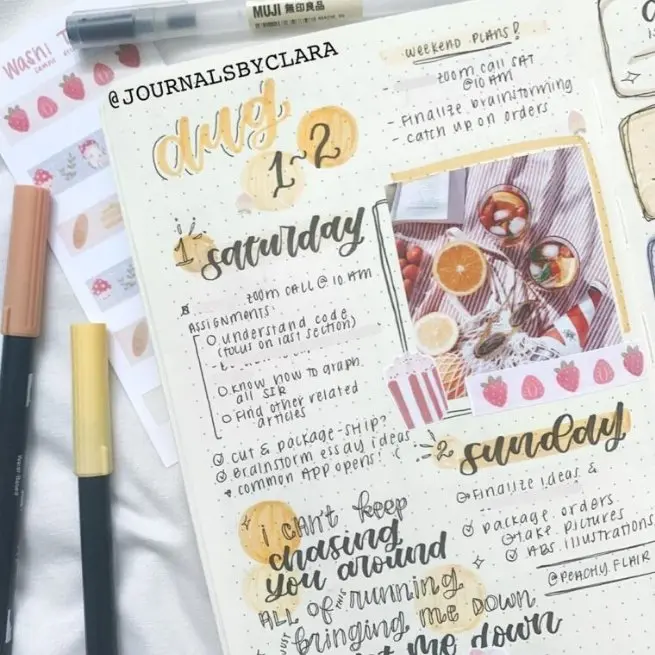 MUJI 無印良品
Washi T
@JOURNALSBYCLARA
aug
1~2
WEEKEND PLANS!
- zoom call SAT
@10 AM
- Finalize brainstorming
- catch up on orders
1 saturday
zoom call @ 10 AM
ASSIGNMENTS:
understand code
(focus on last section)
Know how to graph
all SIR
Find other related
articles
cut & package-ship?
Brainstorm essay ideas
common APP opens!
2 sunday
Finalize ideas &
package orders
take pictures
ABS illustrations
@PEACHY.FLAIR
i can't keep
chasing
you around
ALL OF THIS running
JUST bringing me DOWN
me down